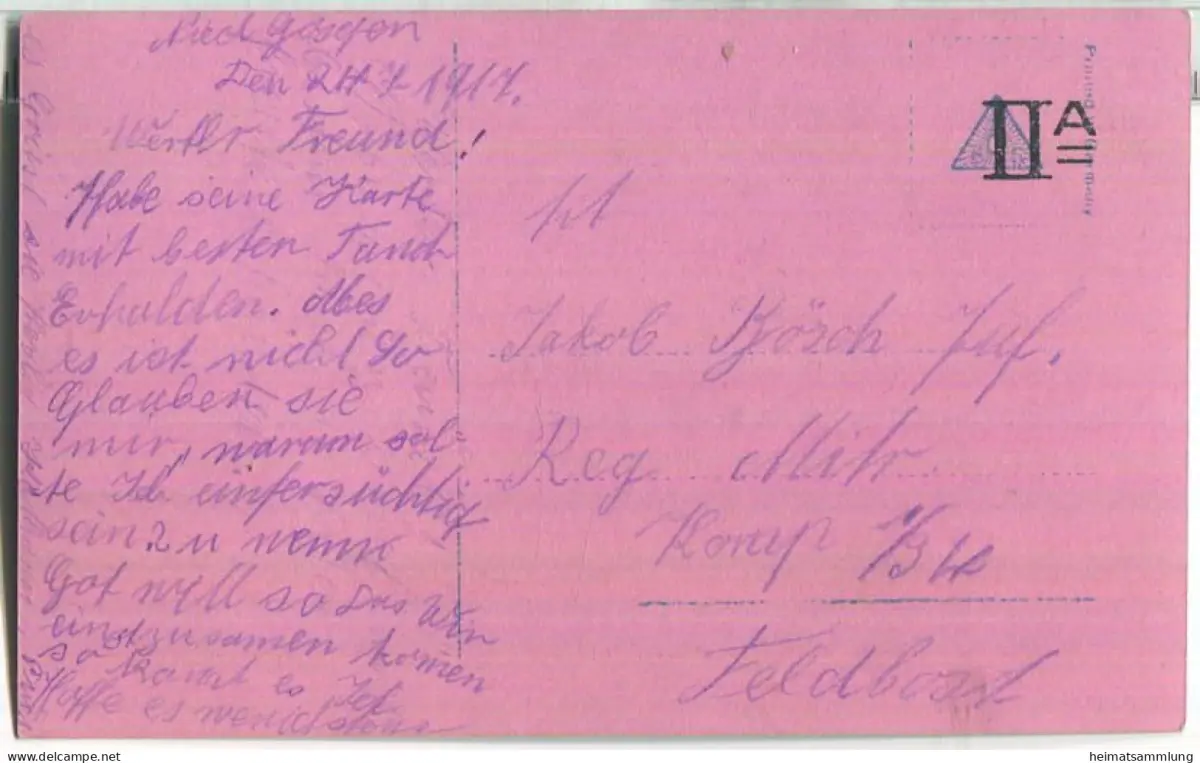 Den 24 7 1917.
Werter Freund!
Habe seine Karte
mit besten Tanck
Erhalden. Abes
es ist nicht so
Glauben sie
mir, warum sol-
te Ich einfersüchtig
sein? u wenn
Got will so das wir
einst zusamen komen
so kount es
Hoffe es wenichstens
Jakob Bösch Füs,
Reg Mitr
Komp
Feldbost
II A
Printed Germany
heimatsammlung